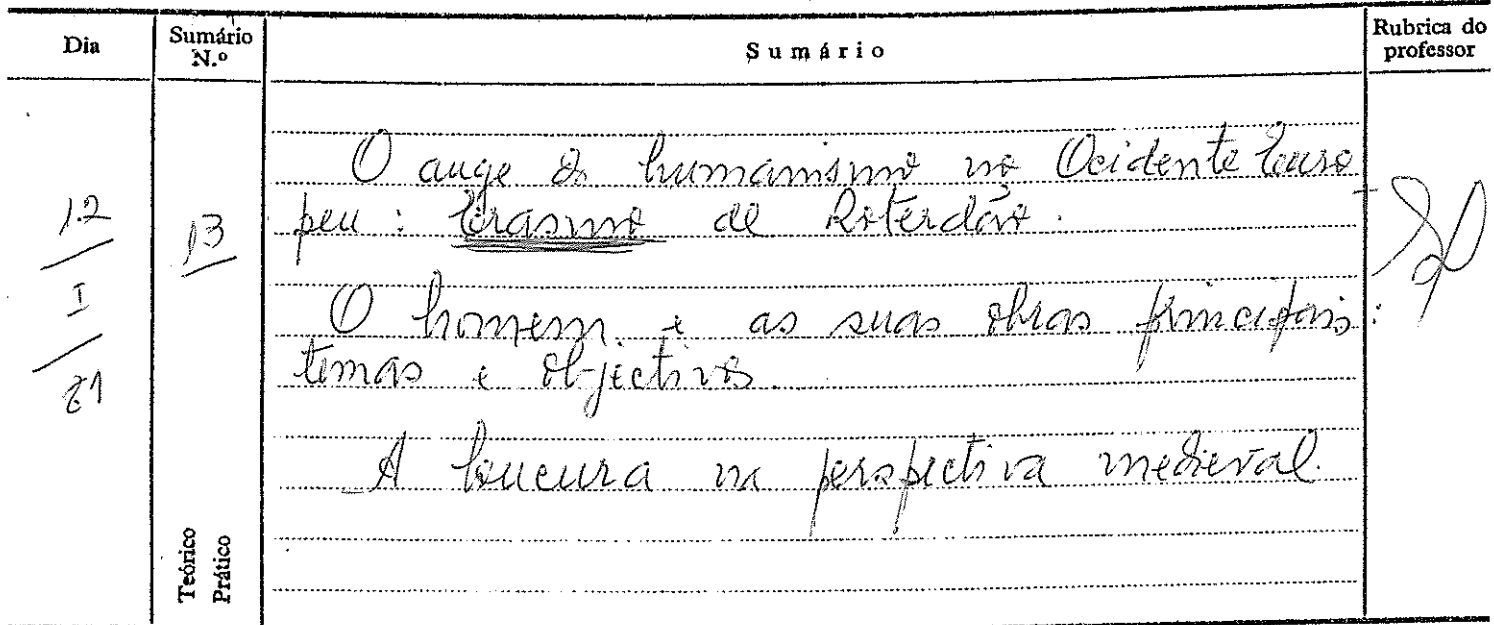 Dia
Sumário N.º
Sumário
Rubrica do professor
12
I
81
13
O auge do humanismo no Ocidente Euro-
peu : Erasmo de Roterdão.
O homem e as suas obras principais:
temas e objectivos.
A loucura na perspectiva medieval.
Teórico
Prático